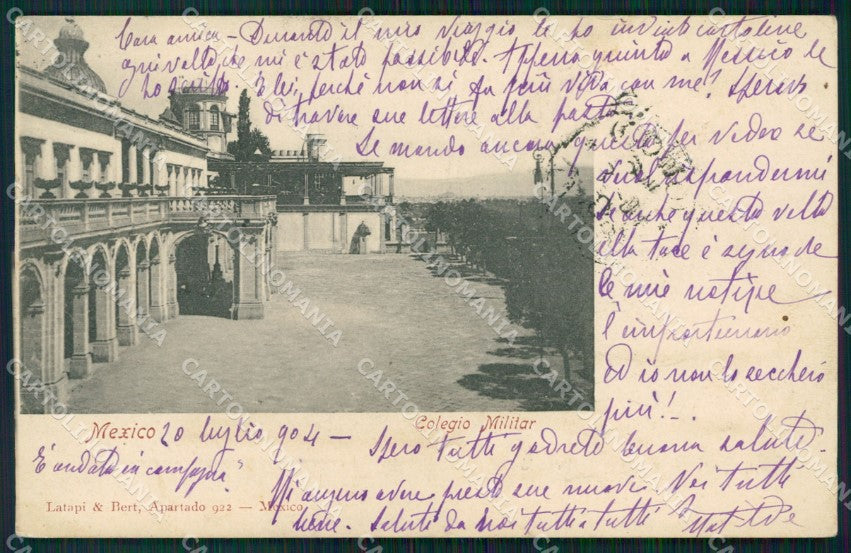 Cara amica - Durante il mio viaggio le ho inviato cartoline
ogni volta che mi è stato possibile. Appena giunta a Messico le
ho scritto. E lei, perchè non si fa più viva con me? Speravo
di trovare sue lettere alla posta.
Le mando ancora questa per vedere se
vuol rispondermi
Se anche questa volta
ella tace è segno che
le mie notizie
l'importunano
ed io non la seccherò
più! -
Mexico 20 luglio 904 -
Colegio Militar
Spero tutti godrete buona salute.
È andata in campagna?
Mi auguro avere presto sue nuove. Noi tutti
bene. Saluti da noi tutti a tutti Matilde
Latapi & Bert, Apartado 922 — Mexico
CARTOLINOMANIA